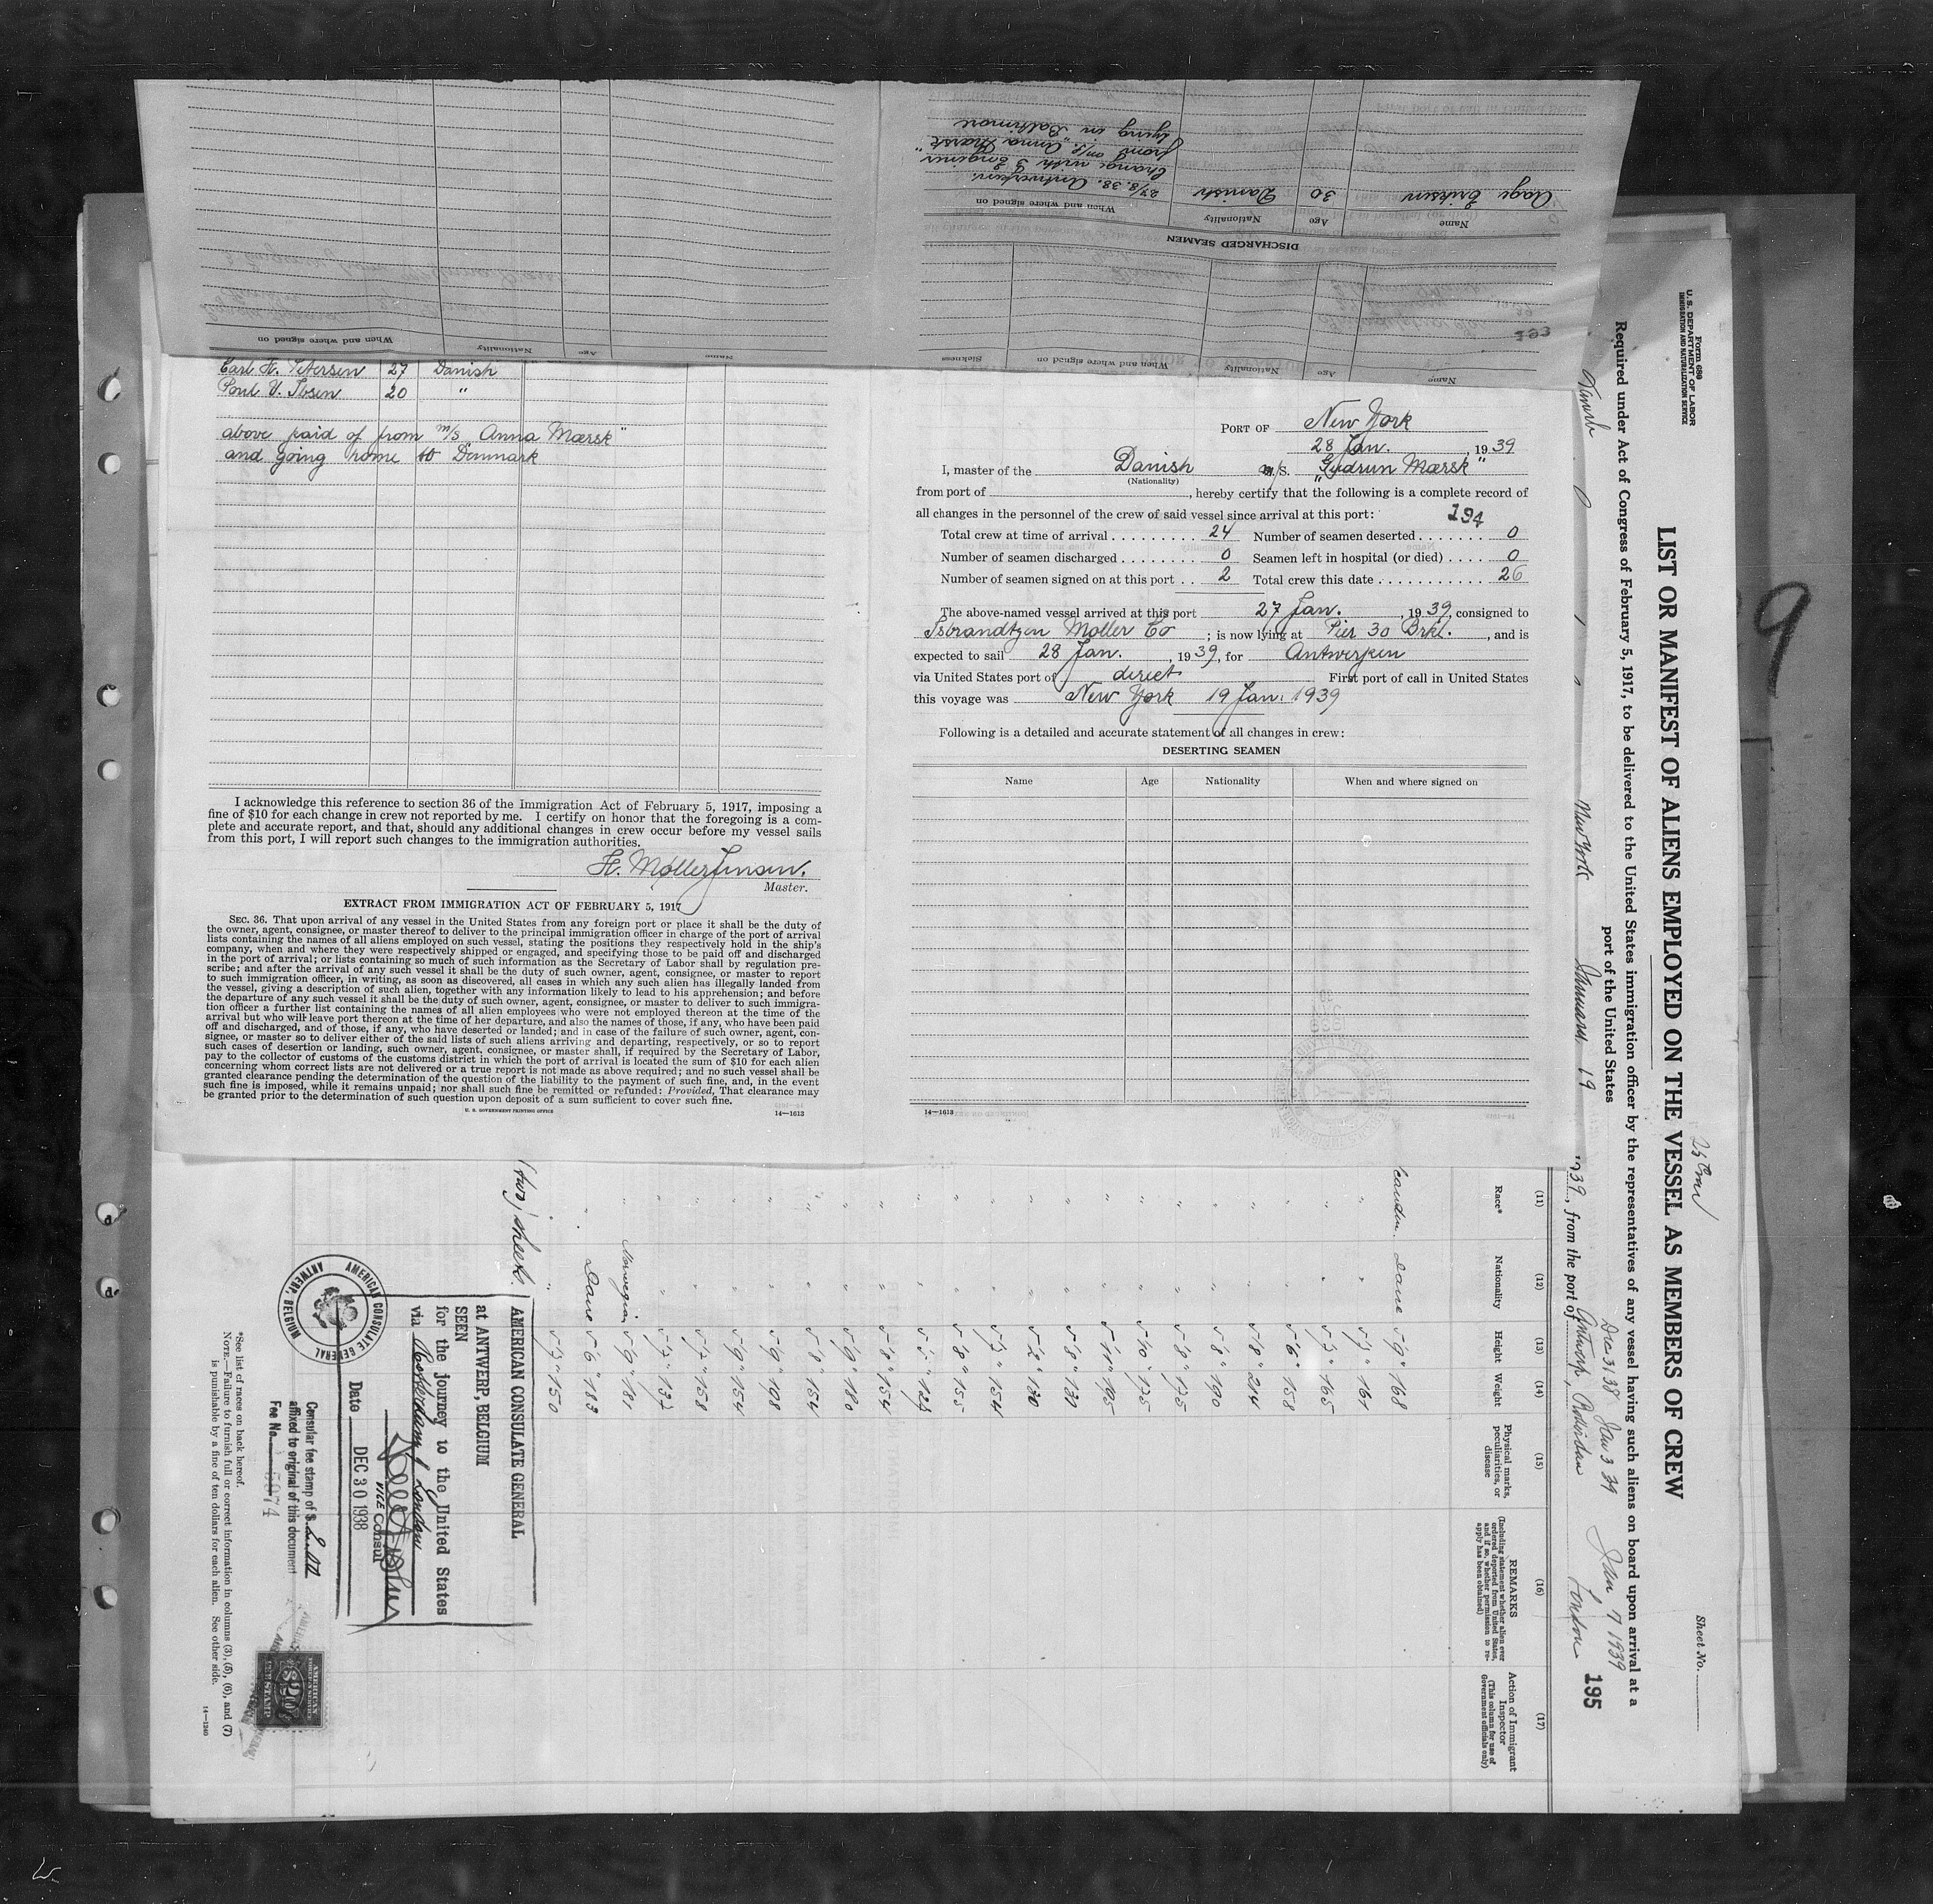 Aage Eriksen 30 Danish 27/8.38. Antwerpen.
Change with 3 Engineer
from m/s. "Anna Mærsk"
lying in Baltimore
Name Age Nationality When and where signed on
DISCHARGED SEAMEN
193
Name Age Nationality When and where signed on Sickness
Name Age Nationality When and where signed on
Carl H. Petersen 27 Danish
Poul V. Ibsen 20 "
above paid of from m/s "Anna Mærsk"
and going home to Denmark
I acknowledge this reference to section 36 of the Immigration Act of February 5, 1917, imposing a
fine of $10 for each change in crew not reported by me. I certify on honor that the foregoing is a com-
plete and accurate report, and that, should any additional changes in crew occur before my vessel sails
from this port, I will report such changes to the immigration authorities.
H. Møller Jensen.
Master.
EXTRACT FROM IMMIGRATION ACT OF FEBRUARY 5, 1917
SEC. 36. That upon arrival of any vessel in the United States from any foreign port or place it shall be the duty of
the owner, agent, consignee, or master thereof to deliver to the principal immigration officer in charge of the port of arrival
lists containing the names of all aliens employed on such vessel, stating the positions they respectively hold in the ship's
company, when and where they were respectively shipped or engaged, and specifying those to be paid off and discharged
in the port of arrival; or lists containing so much of such information as the Secretary of Labor shall by regulation pre-
scribe; and after the arrival of any such vessel it shall be the duty of such owner, agent, consignee, or master to report
to such immigration officer, in writing, as soon as discovered, all cases in which any such alien has illegally landed from
the vessel, giving a description of such alien, together with any information likely to lead to his apprehension; and before
the departure of any such vessel it shall be the duty of such owner, agent, consignee, or master to deliver to such immigra-
tion officer a further list containing the names of all alien employees who were not employed thereon at the time of the
arrival but who will leave port thereon at the time of her departure, and also the names of those, if any, who have been paid
off and discharged, and of those, if any, who have deserted or landed; and in case of the failure of such owner, agent, con-
signee, or master so to deliver either of the said lists of such aliens arriving and departing, respectively, or so to report
such cases of desertion or landing, such owner, agent, consignee, or master shall, if required by the Secretary of Labor,
pay to the collector of customs of the customs district in which the port of arrival is located the sum of $10 for each alien
concerning whom correct lists are not delivered or a true report is not made as above required; and no such vessel shall be
granted clearance pending the determination of the question of the liability to the payment of such fine, and, in the event
such fine is imposed, while it remains unpaid; nor shall such fine be remitted or refunded: Provided, That clearance may
be granted prior to the determination of such question upon deposit of a sum sufficient to cover such fine.
U. S. GOVERNMENT PRINTING OFFICE 14—1613
PORT OF New York
28 Jan., 1939
I, master of the Danish m/S. "Gudrun Mærsk"
(Nationality)
from port of , hereby certify that the following is a complete record of
all changes in the personnel of the crew of said vessel since arrival at this port:
194
Total crew at time of arrival 24 Number of seamen deserted 0
Number of seamen discharged 0 Seamen left in hospital (or died) 0
Number of seamen signed on at this port 2 Total crew this date 26
The above-named vessel arrived at this port 27 Jan., 1939, consigned to
Isbrandtzen Moller Co; is now lying at Pier 30 Brkl., and is
expected to sail 28 Jan., 1939, for Antwerpen
via United States port of direct First port of call in United States
this voyage was New York 19 Jan. 1939
Following is a detailed and accurate statement of all changes in crew:
DESERTING SEAMEN
Name Age Nationality When and where signed on
14—1613
Form 689
U. S. DEPARTMENT OF LABOR
IMMIGRATION AND NATURALIZATION SERVICE
Sheet No.
LIST OR MANIFEST OF ALIENS EMPLOYED ON THE VESSEL AS MEMBERS OF CREW
Required under Act of Congress of February 5, 1917, to be delivered to the United States immigration officer by the representatives of any vessel having such aliens on board upon arrival at a
port of the United States
Dec 31 38 Jan 3 39 Jan 7 1939
New York January 19 1939, from the port of Antwerp, Rotterdam, London
195
9
(11) (12) (13) (14) (15) (16) (17)
Race* Nationality Height Weight Physical marks, peculiarities, or disease REMARKS (Including statement whether alien ever ordered deported from United States, and if so, whether permission to re-apply has been obtained) Action of Immigrant Inspector (This column for use of Government officials only)
Dane 5'9" 168
" " 5'7" 161
" " 5'7" 165
" " 5'6" 158
" " 5'8" 214
" " 5'8" 190
" " 5'8" 175
" " 5'10" 175
" " 5'11" 195
" " 5'8" 139
" " 5'2" 130
" " 5'7" 154
" " 5'8" 155
" " 5'5" 125
" " 5'8" 154
" " 5'9" 180
" " 5'8" 154
" " 5'9" 198
" " 5'9" 154
" " 5'7" 158
" " 5'7" 137
" Norwegian 5'9" 181
" Dane 5'6" 183
" " 5'7" 150
(two) sheets.
AMERICAN CONSULATE GENERAL
at ANTWERP, BELGIUM
SEEN
for the journey to the United States
via Rotterdam, London
VICE Consul
Date DEC 30 1938
AMERICAN CONSULATE GENERAL
ANTWERP, BELGIUM
Consular fee stamp of $
affixed to original of this document
Fee No. 5974
AMERICAN
FOREIGN SERVICE
$2.00
FEE STAMP
*See list of races on back hereof.
NOTE.—Failure to furnish full or correct information in columns (3), (5), (6), and (7)
is punishable by a fine of ten dollars for each alien. See other side.
14—1240